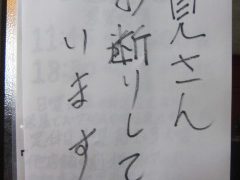 見さん
お断りして
います